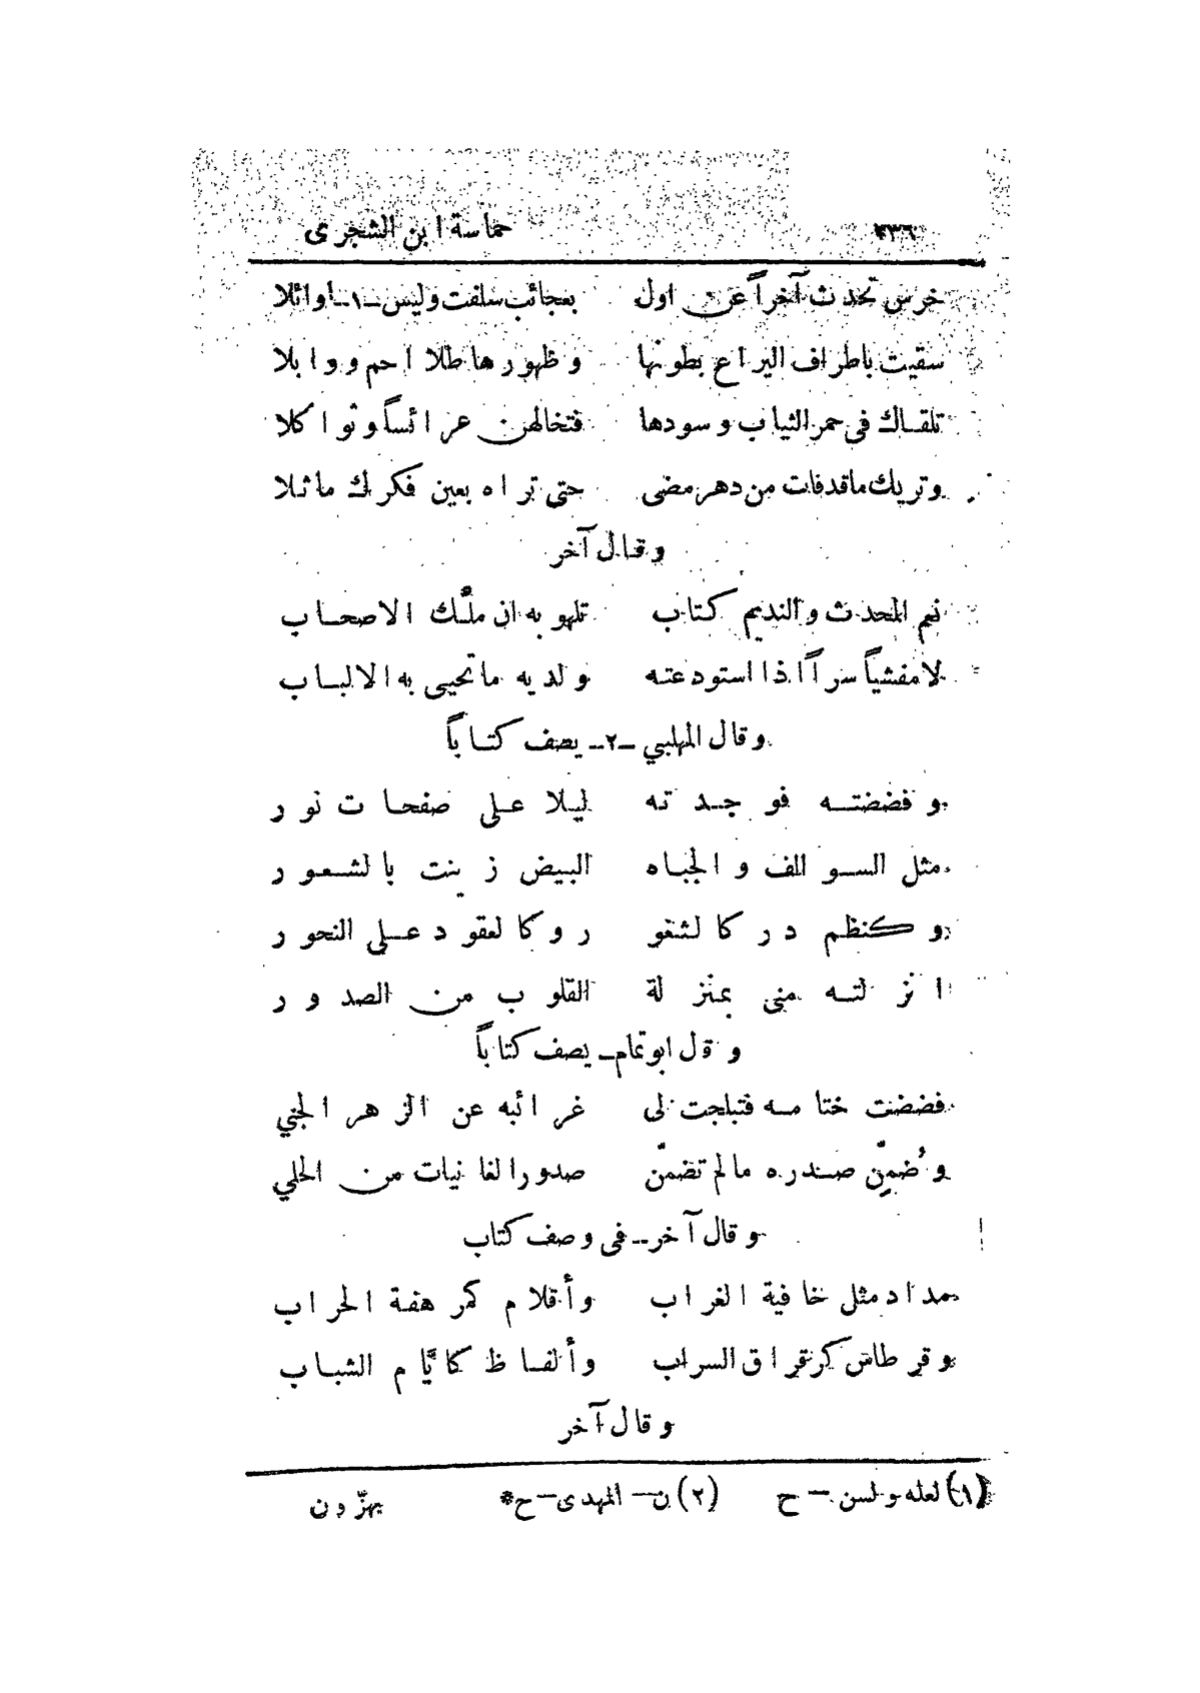 ٢٣٦ حماسة ابن الشجرى
خرس تحدث آخراً عن اول بعجائب سلفت وليس -١- اوائلا
سقيت باطراف اليراع بطونها وظهورها طلا احم ووابلا
تلقاك فى حمر الثياب وسودها فتخالهن عرائساً وثواكلا
وتريك ماقدفات من دهر مضى حتى تراه بعين فكرك ماثلا
وقال آخر
نعم المحدث والنديم كتاب تلهو به ان ملّك الاصحاب
لامفشياً سراً اذا استودعته ولديه ماتحيى به الالباب
وقال المهلبي -٢- يصف كتاباً
وفضضته فوجدته ليلا على صفحات نور
مثل السوالف والجباه البيض زينت بالشعور
وكنظم در كالثغور وكالعقود على النحور
انزلته منى بمنزلة القلوب من الصدور
وقل ابوتمام - يصف كتاباً
فضضت ختامه فتبلجت لى غرائبه عن الزهر الجني
وضُمّن صدره مالم تضمّن صدور الغانيات من الحلي
وقال آخر - فى وصف كتاب
بمداد مثل خافية الغراب وأقلام كمرهفة الحراب
وقرطاس كرقراق السراب وألفاظ كايّام الشباب
وقال آخر
(١) لعله ولسن - ح (٢) ن - المهدى - ح* يهزّون